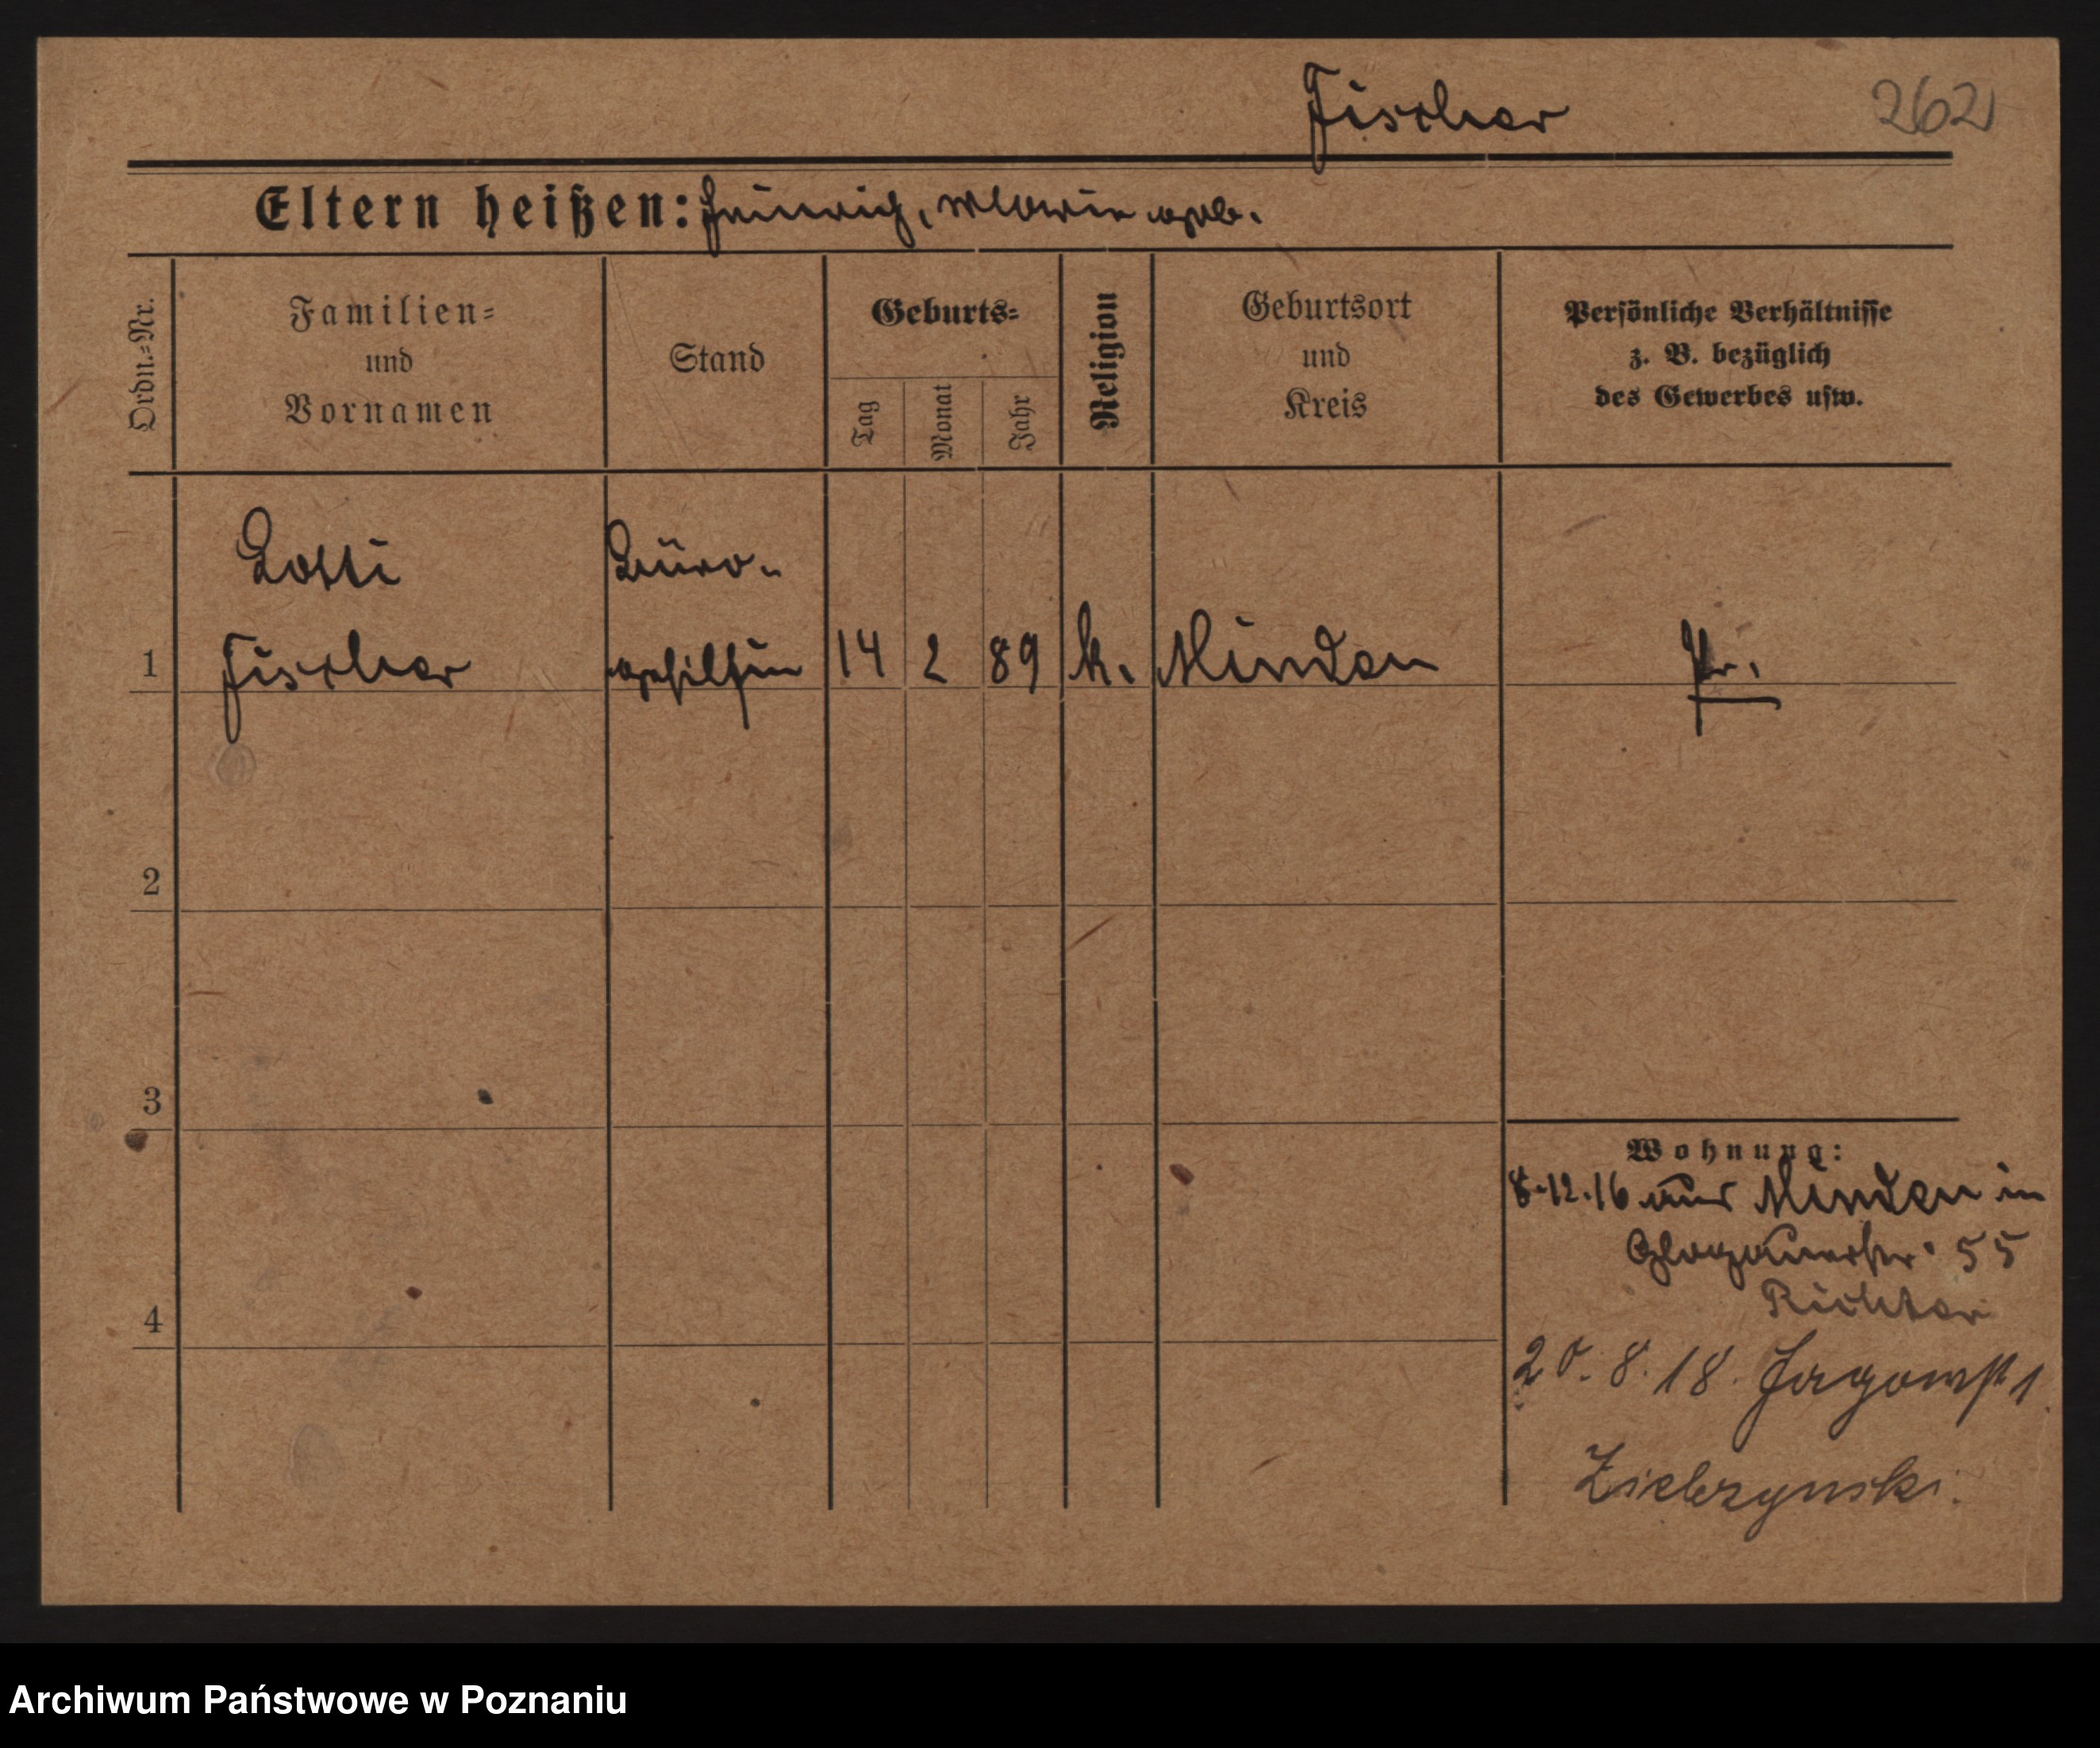 Fischer 262
Eltern heißen: Heinrich, Marie geb.
Ordn.=Nr.
Familien=
und
Vornamen
Stand
Geburts=
Tag
Monat
Jahr
Religion
Geburtsort
und
Kreis
Persönliche Verhältnisse
z. B. bezüglich
des Gewerbes usw.
Lotti
Fischer
Büro-
gehilfin
1
14 2 89 k. Minden Pr.
2
3
4
Wohnung:
8.12.16 aus Minden in
Glogauerstr. 55
Richter
20.8.18. Jagowst 1.
Ziebzynski.
Archiwum Państwowe w Poznaniu